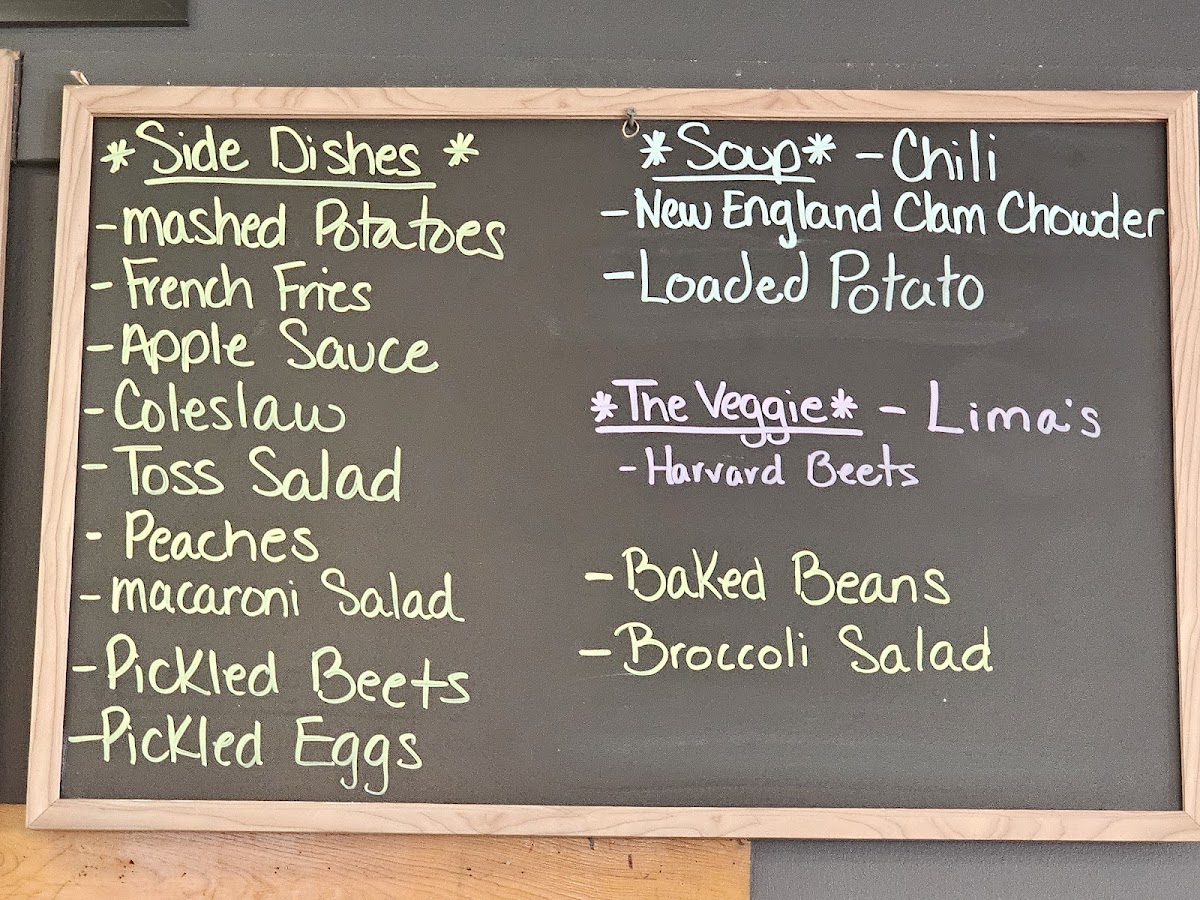 *Side Dishes*
-mashed Potatoes
-French Fries
-Apple Sauce
-Coleslaw
-Toss Salad
-Peaches
-macaroni Salad
-Pickled Beets
-Pickled Eggs
*Soup* -Chili
-New England Clam Chowder
-Loaded Potato
*The Veggie* - Lima's
-Harvard Beets
-Baked Beans
-Broccoli Salad